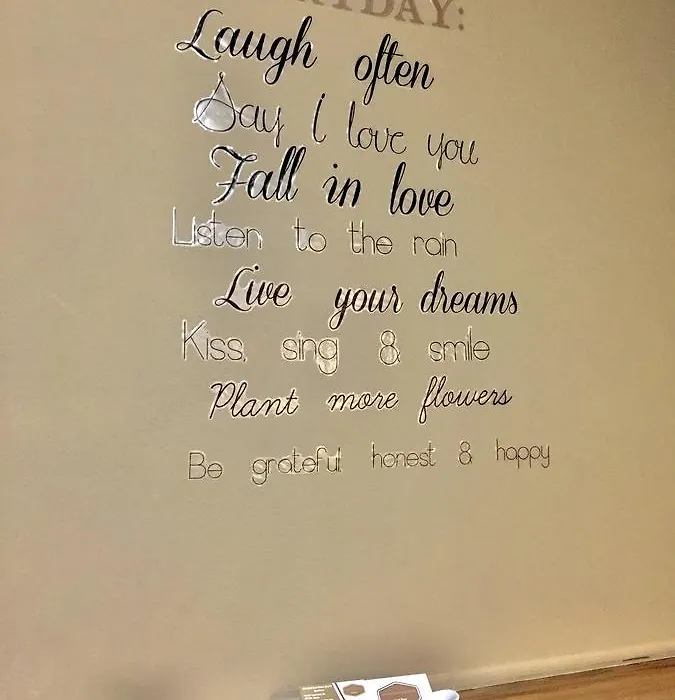 Laugh often
Say i love you
Fall in love
Listen to the rain
Live your dreams
Kiss, sing & smile
Plant more flowers
Be grateful honest & happy